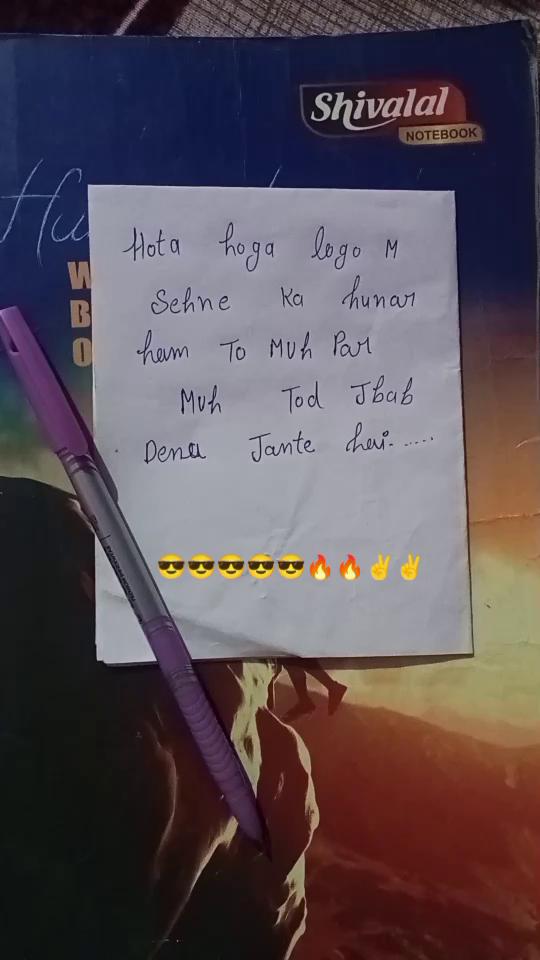 Shivalal
NOTEBOOK
Hu
W
B
O
Hota hoga logo M
Sehne Ka hunar
ham To Muh Par
Muh Tod Jbab
Dena Jante hai.....
😎😎😎😎😎🔥🔥✌️✌️